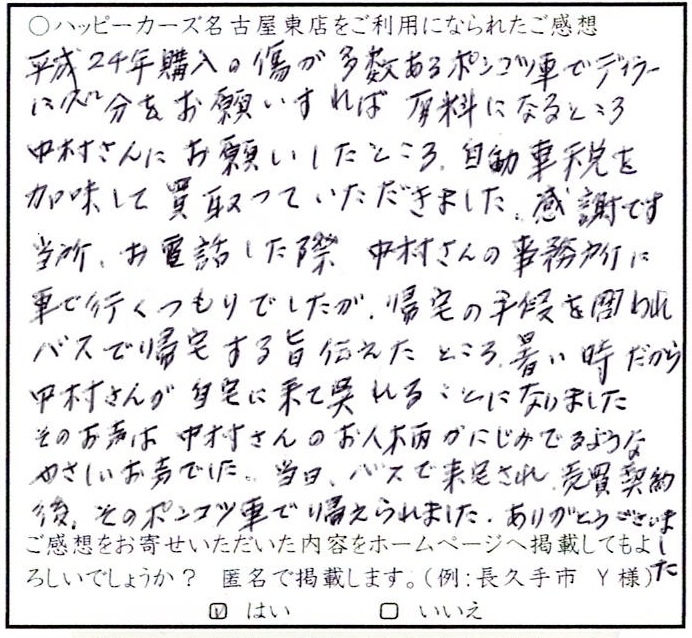 ○ハッピーカーズ名古屋東店をご利用になられたご感想
平成24年購入の傷が多数あるポンコツ車でディラー
に処分をお願いすれば有料になるところ
中村さんにお願いしたところ、自動車税を
加味して買取っていただきました。感謝です
当所、お電話した際 中村さんの事務所に
車で行くつもりでしたが、帰宅の手段を問われ
バスで帰宅する旨伝えたところ、暑い時だから
中村さんが自宅に来て呉れることになりました
そのお声は中村さんのお人柄がにじみでるような
やさしいお声でした。当日、バスで来宅され、売買契約
後、そのポンコツ車で帰えられました。ありがとうございま
した
ご感想をお寄せいただいた内容をホームページへ掲載してもよ
ろしいでしょうか? 匿名で掲載します。(例:長久手市 Y様)
☑ はい □ いいえ